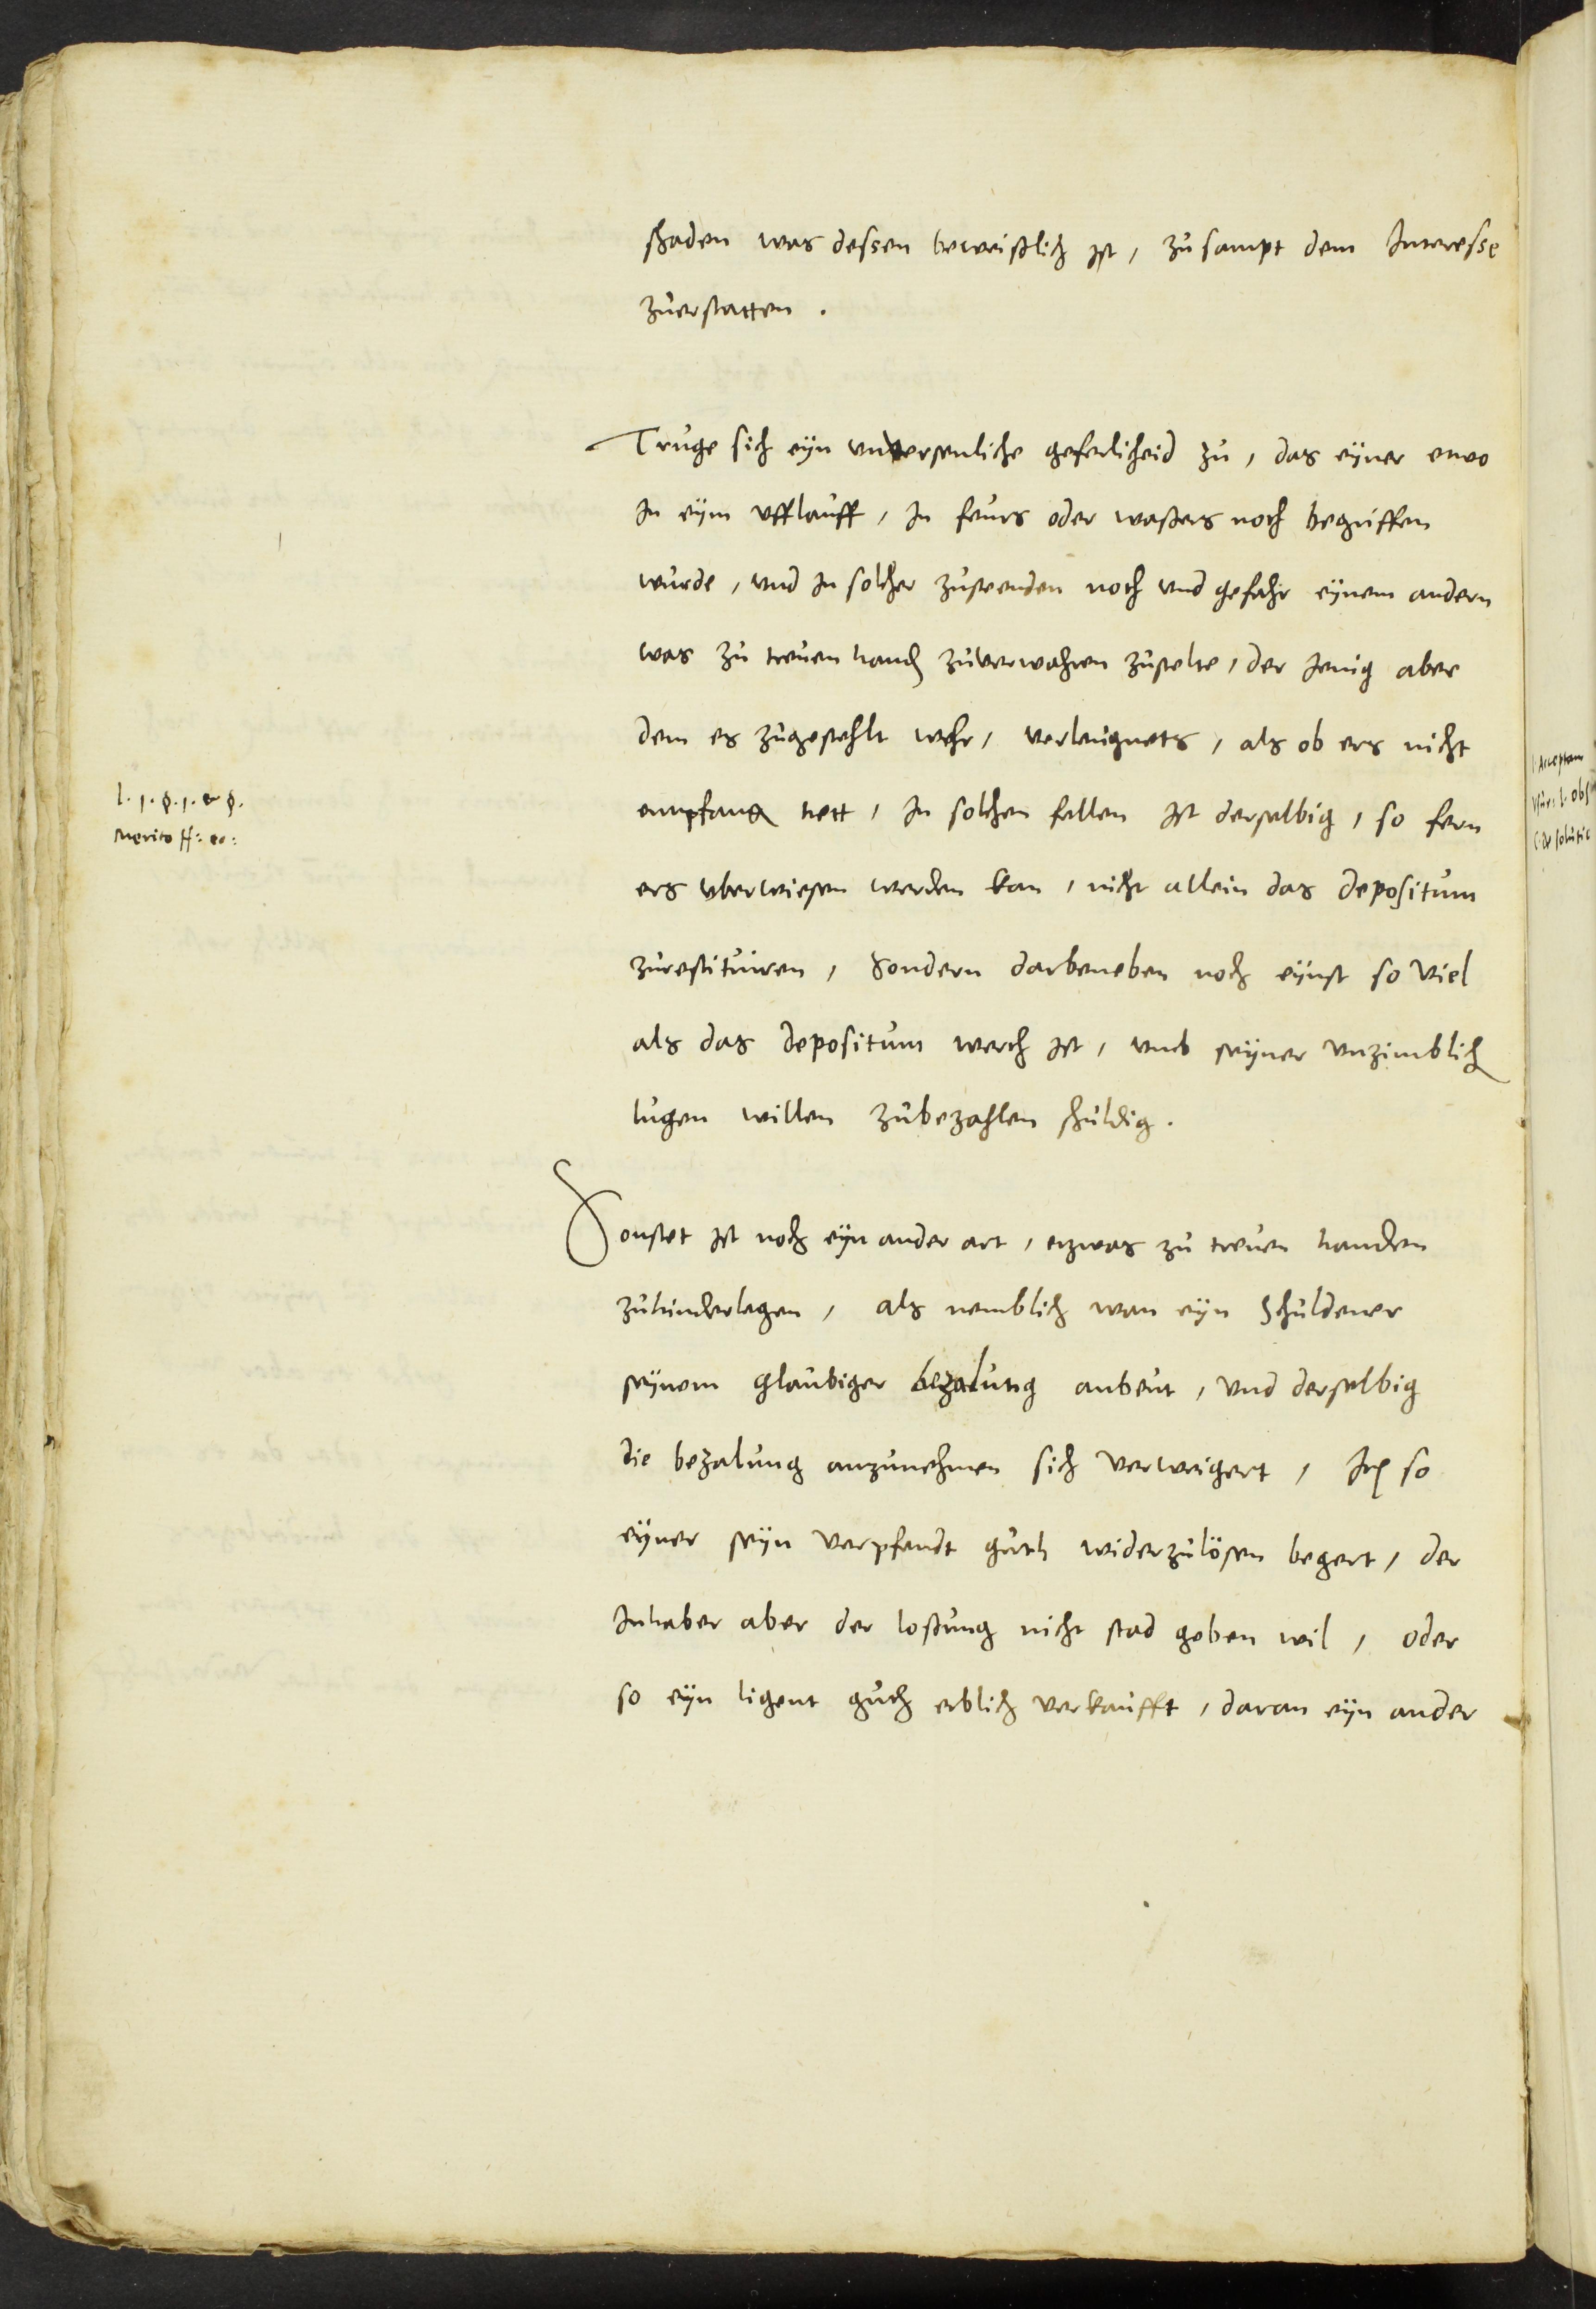 schaden was dessen beweißlich ist, zu sampt dem Interesse
zuerstatten.
Truge sich eyn unversenliche geferlicheid zu, das eyner etwo
in eym ufflauff, in feurs oder waßers noth begriffen
wurde, und in solcher zustenden noth und gefahr eynem andern
was zu treuen hand zuverwahren zustelte, der jenig aber
dem es zugestehlt wehr, verleugnets, als ob ers nicht
l. 1. §. 1. et §.
merito ff: eo:
empfang hett, in solchen fellen ist derselbig, so fern
ers uberwiesen werden kan, nicht allein das depositum
zurestituiren, sondern darbeneben noch eynst so viel
als das depositum werth ist, umb seyner unzimblich
lugen willen zubezahlen schuldig.
Sonstet ist noch eyn ander art, etzwas zu treuen handen
zuhinderlegen, als nemblich wan eyn Schuldener
seynem glaubiger bezalung anbeut, und derselbig
die bezalung anzunehmen sich verweigert, Itē so
eyner seyn verpfendt guth widerzulösen begert, der
Inhaber aber der loßung nicht stad geben wil, oder
so eyn ligent guth erblich verkaufft, daran eyn ander